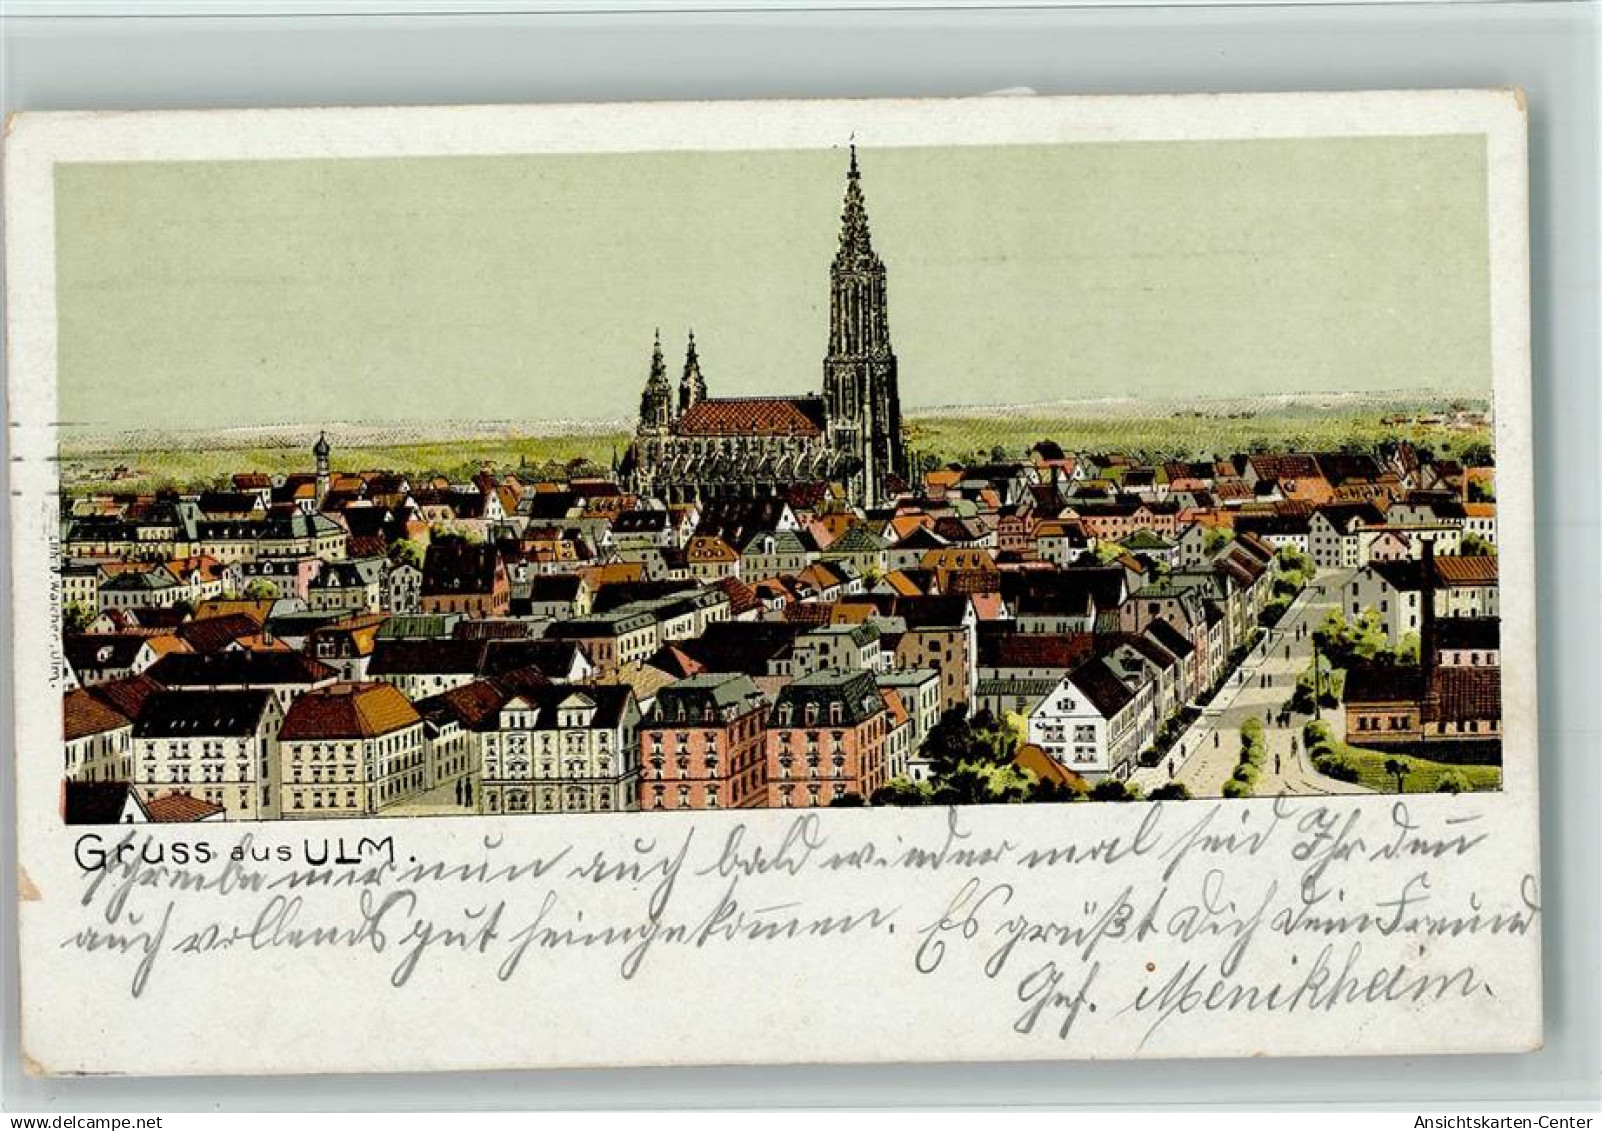 Gruss aus ULM.
schreibe mir nun auch bald wieder mal seid Ihr denn
auch vollends gut heimgekom̅en. Es grüßt Dich Dein Freund
Gef. Menikheim.
Ansichtskarten-Center